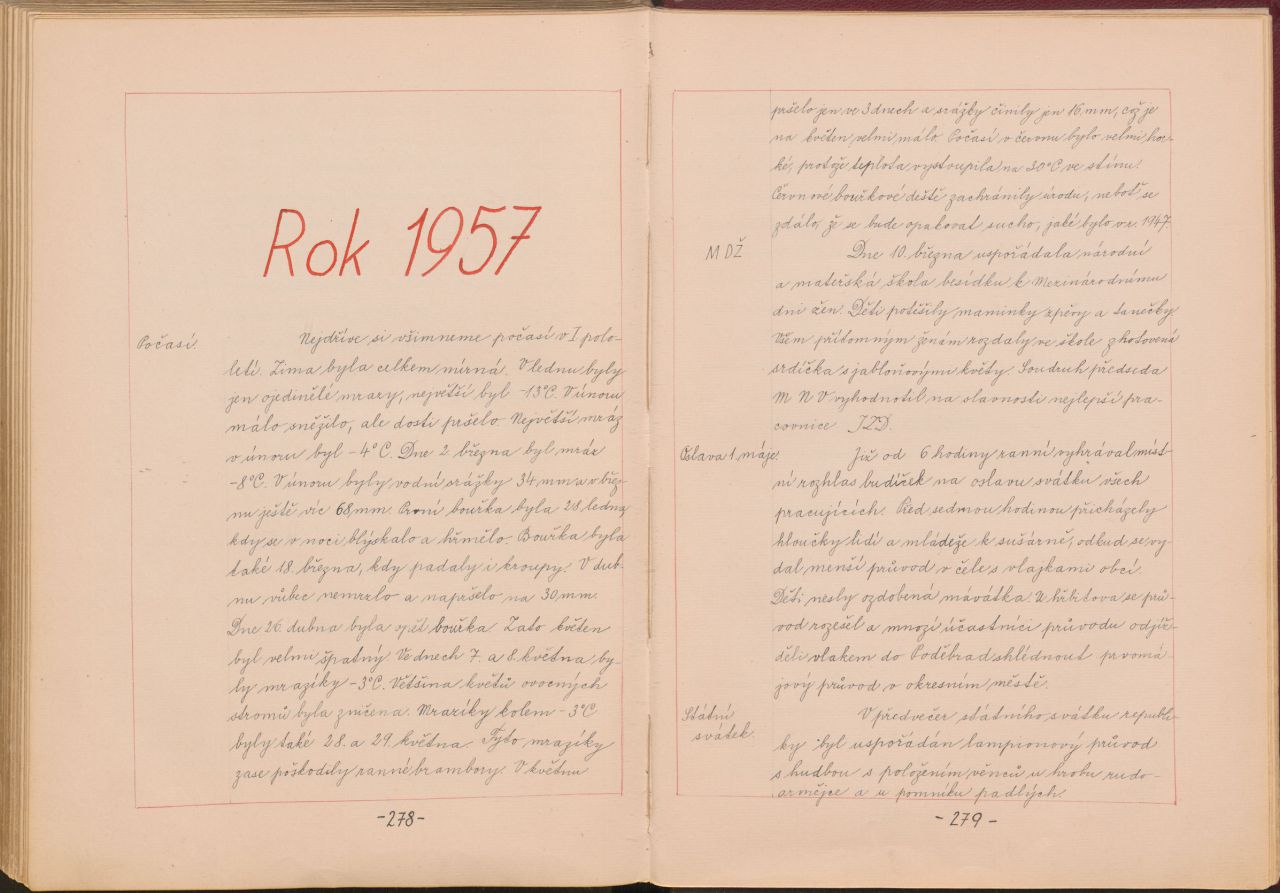 Rok 1957
Počasí.
Nejdříve si všimneme počasí v I. polo-
letí. Zima byla celkem mírná. V lednu byly
jen ojedinělé mrazy, největší byl -13°C. V únoru
málo sněžilo, ale dosti pršelo. Největší mráz
v únoru byl -4°C. Dne 2. března byl mráz
-8°C. V únoru byly vodní srážky 34 mm a v břez-
nu ještě víc 68 mm. První bouřka byla 28. ledna,
kdy se v noci blýskalo a hřmělo. Bouřka byla
také 18. března, kdy padaly i kroupy. V dub-
nu vůbec nemrzlo a napršelo na 30 mm.
Dne 26. dubna byla opět bouřka. Zato květen
byl velmi špatný. Ve dnech 7. a 8. května by-
ly mrazíky -3°C. Většina květů ovocných
stromů byla zničena. Mrazíky kolem -3°C
byly také 28. a 29. května. Tyto mrazíky
zase poškodily ranné brambory. V květnu
-278-
pršelo jen ve 3 dnech a srážky činily jen 16 mm, což je
na květen velmi málo. Počasí v červnu bylo velmi hor-
ké, protože teplota vystoupila na 30°C ve stínu.
Červnové bouřkové deště zachránily úrodu, neboť se
zdálo, že se bude opakovat sucho, jaké bylo v r. 1947.
MDŽ
Dne 10. března uspořádala národní
a mateřská škola besídku k Mezinárodnímu
dni žen. Děti potěšily maminky zpěvy a tanečky.
Všem přítomným ženám rozdaly ve škole zhotovená
srdíčka s jabloňovými květy. Soudruh předseda
MNV vyhodnotil na slavnosti nejlepší pra-
covnice JZD.
Oslava 1. máje.
Již od 6 hodiny ranní vyhrával míst-
ní rozhlas budíček na oslavu svátku všech
pracujících. Před sedmou hodinou přicházely
hloučky lidí a mládeže k sušárně, odkud se vy-
dal menší průvod v čele s vlajkami obcí.
Děti nesly ozdobená mávátka. U hřbitova se prů-
vod rozešel a mnozí účastníci průvodu odjíž-
děli vlakem do Poděbrad shlédnout prvomá-
jový průvod v okresním městě.
Státní
svátek.
V předvečer státního svátku republi-
ky byl uspořádán lampionový průvod
s hudbou s položením věnců u hrobu rudo-
armějce a u pomníku padlých.
-279-